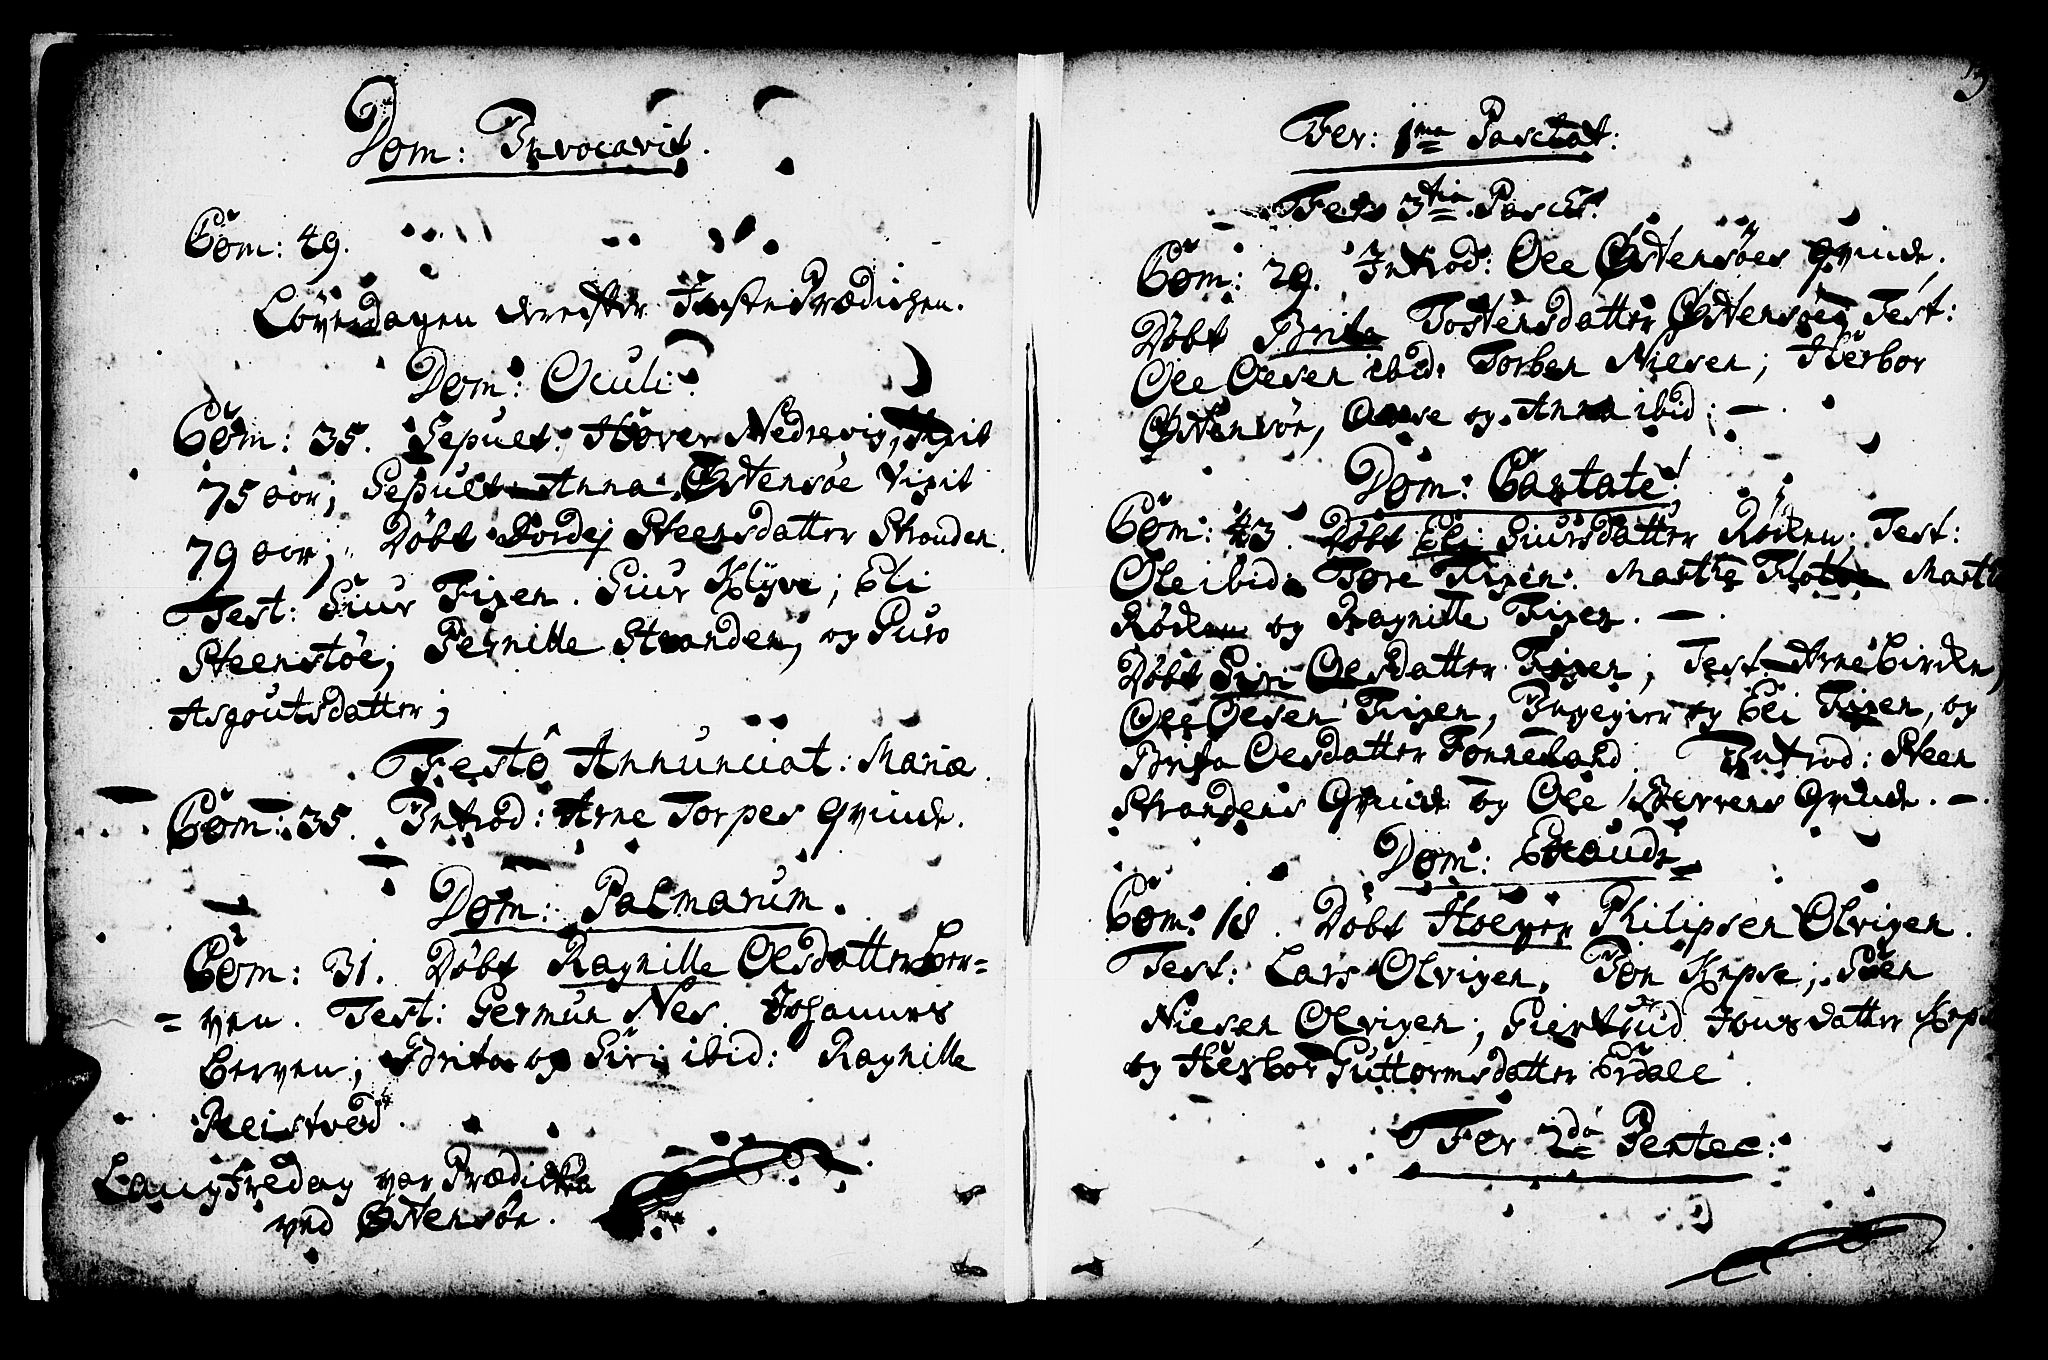 Dom: Invocavit.
Com: 49.
Löverdagen derefter FastePrædichen.
Dom: Oculi.
Com: 35. Sepult: Haaver Nedrevig, vixit
75 aar; Sepult Anna Östensöe vixit
79 aar; Döbt Steensdatter Stranden.
Test: Siur Fixen. Siur Klyve; Eli
Steenstöe; Pernille Stranden, og Guro
Asgoutsdatter;
Festo Annunciat: Mariæ.
Com: 35. Introd: Arne Torpes Qvinde.
Dom: Palmarum.
Com: 31. Döbt Ragnille Olsdatter Ber=
=ven. Test: Germun Nes. Johannes
Berven; Brita og Siri ibid: Ragnille
Reistved.
Langfredag var Prædichen
ved Östensöe.
Fer: 1ma Paschat:
Fer 3tia Pasch:
Com: 29. Introd: Ole Östensöes Qvinde.
Döbt Brita Tostensdatter Östensöe Test:
Ole Olsen ibid: Torben Nielsen; Herbor
Östensöe, og Anna ibid: —.
Dom: Cantate!
Com: 43. Döbt Eli Siursdatter Röden. Test:
Ole ibid: Tore Fixen. Marthe
Röden og Ragnille Fixen. —.
Döbt Siri Olsdatter Fixen; Test Arne Birken,
Ole Olsen Fixen, Ingegier og Eli Fixen, og
Brita Olsdatter Tonneland. Introd: Steen
Strandens Qvinde og Ole Bervens Qvinde. —.
Dom: Exaudi
Com: 18. Döbt Holger Philipsen Olvigen.
Test: Lars Olvigen, Jon Kepse; Sven
Nielsen Olvigen; Giertrud Jonsdatter Keps
og Herbor Guttormsdatter Erdall.
Fer 2da Pentec: